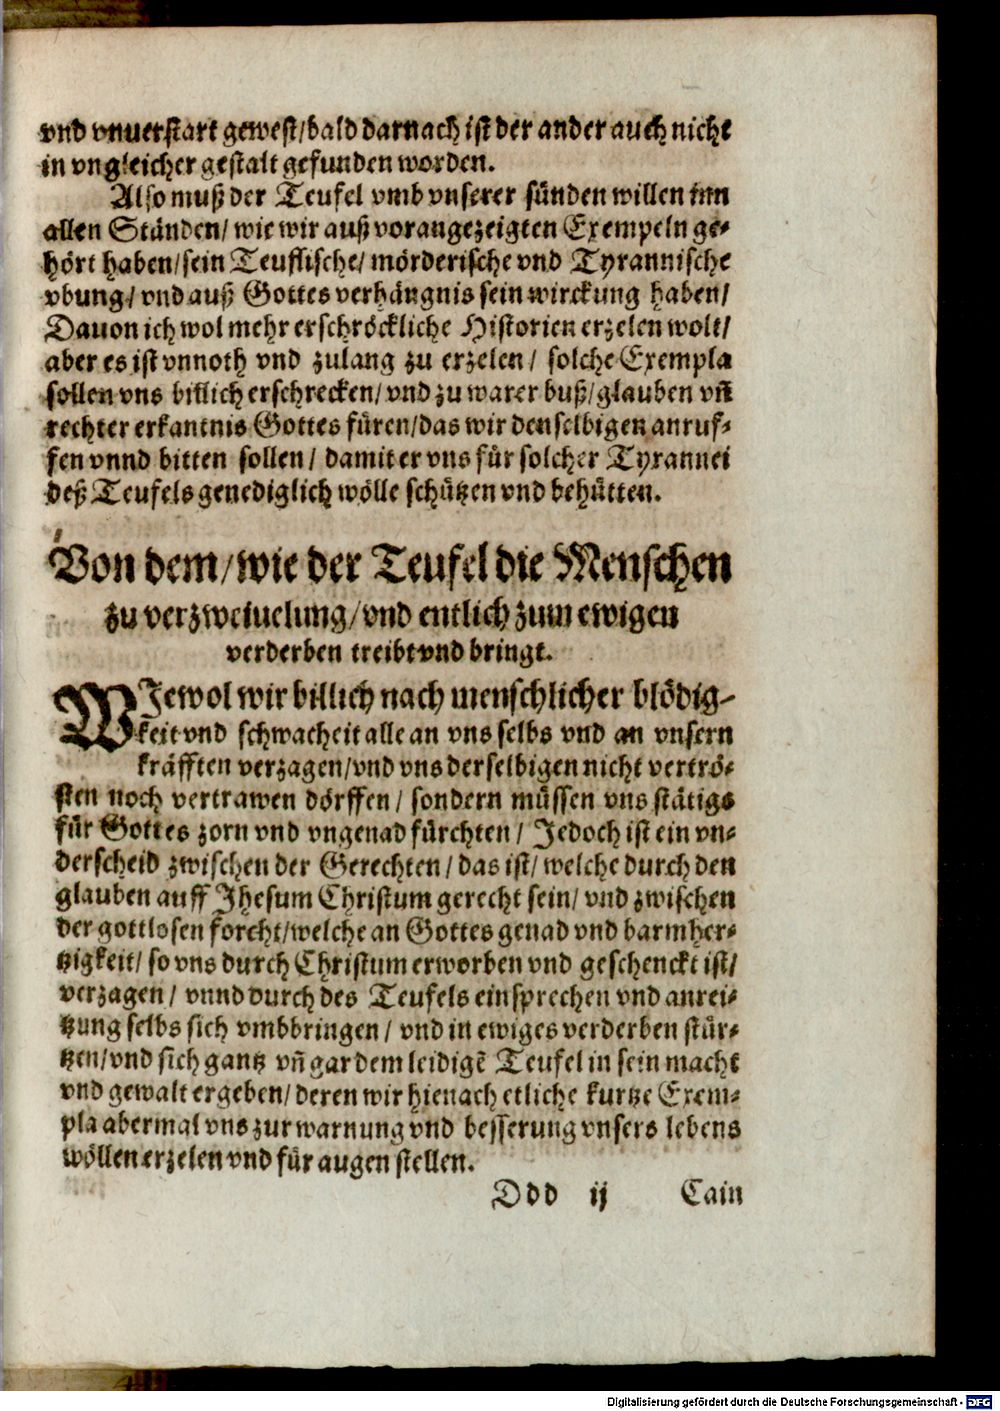 vnd vnuerstart gewest/bald darnach ist der ander auch nicht
in vngleicher gestalt gefunden worden.
Also muß der Teufel vmb vnserer sünden willen inn
allen Ständen/ wie wir auß vorangezeigten Exempeln ge-
hört haben/sein Teuflische/ mörderische vnd Tyrannische
vbung/ vnd auß Gottes verhängnis sein wirckung haben/
Dauon ich wol mehr erschröckliche Historien erzelen wolt/
aber es ist vnnoth vnd zulang zu erzelen/ solche Exempla
sollen vns billich erschrecken/ vnd zu warer buß/glauben vñ
rechter erkantnis Gottes füren/das wir denselbigen anruf-
fen vnnd bitten sollen/ damit er vns für solcher Tyrannei
deß Teufels genediglich wölle schützen vnd behütten.
Von dem/wie der Teufel die Menschen
zu verzweiuelung/vnd entlich zum ewigen
verderben treibt vnd bringt.
WJewol wir billich nach menschlicher blödig-
keit vnd schwacheit alle an vns selbs vnd an vnsern
kräfften verzagen/vnd vns derselbigen nicht vertrö-
sten noch vertrawen dörffen/ sondern müssen vns stätigs
für Gottes zorn vnd vngenad fürchten/ Jedoch ist ein vn-
derscheid zwischen der Gerechten/ das ist/ welche durch den
glauben auff Jhesum Christum gerecht sein/ vnd zwischen
der gottlosen forcht/welche an Gottes genad vnd barmher-
tzigkeit/ so vns durch Christum erworben vnd geschenckt ist/
verzagen/ vnnd durch des Teufels einsprechen vnd anrei-
tzung selbs sich vmbbringen/ vnd in ewiges verderben stür-
tzen/vnd sich gantz vñ gar dem leidigẽ Teufel in sein macht
vnd gewalt ergeben/ deren wir hienach etliche kurtze Exem-
pla abermal vns zur warnung vnd besserung vnsers lebens
wöllen erzelen vnd für augen stellen.
Ddd ij Cain
Digitalisierung gefördert durch die Deutsche Forschungsgemeinschaft - DFG